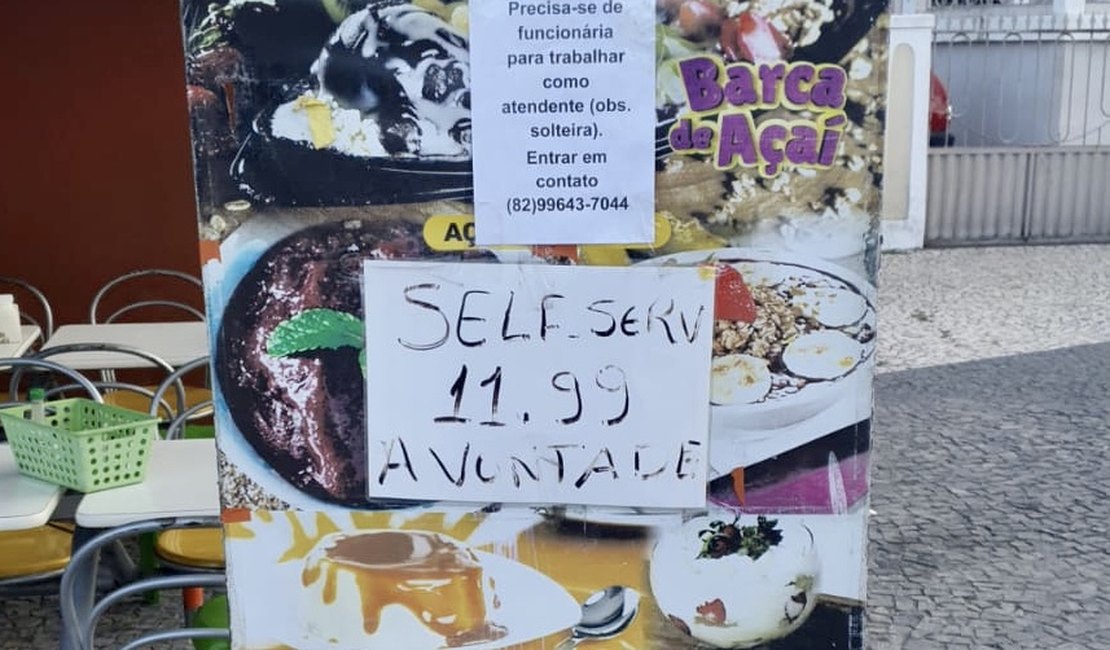 Precisa-se de
funcionária
para trabalhar
como
atendente (obs.
solteira).
Entrar em
contato
(82)99643-7044
Barca
de Açaí
SELF-SERV
11.99
A VONTADE